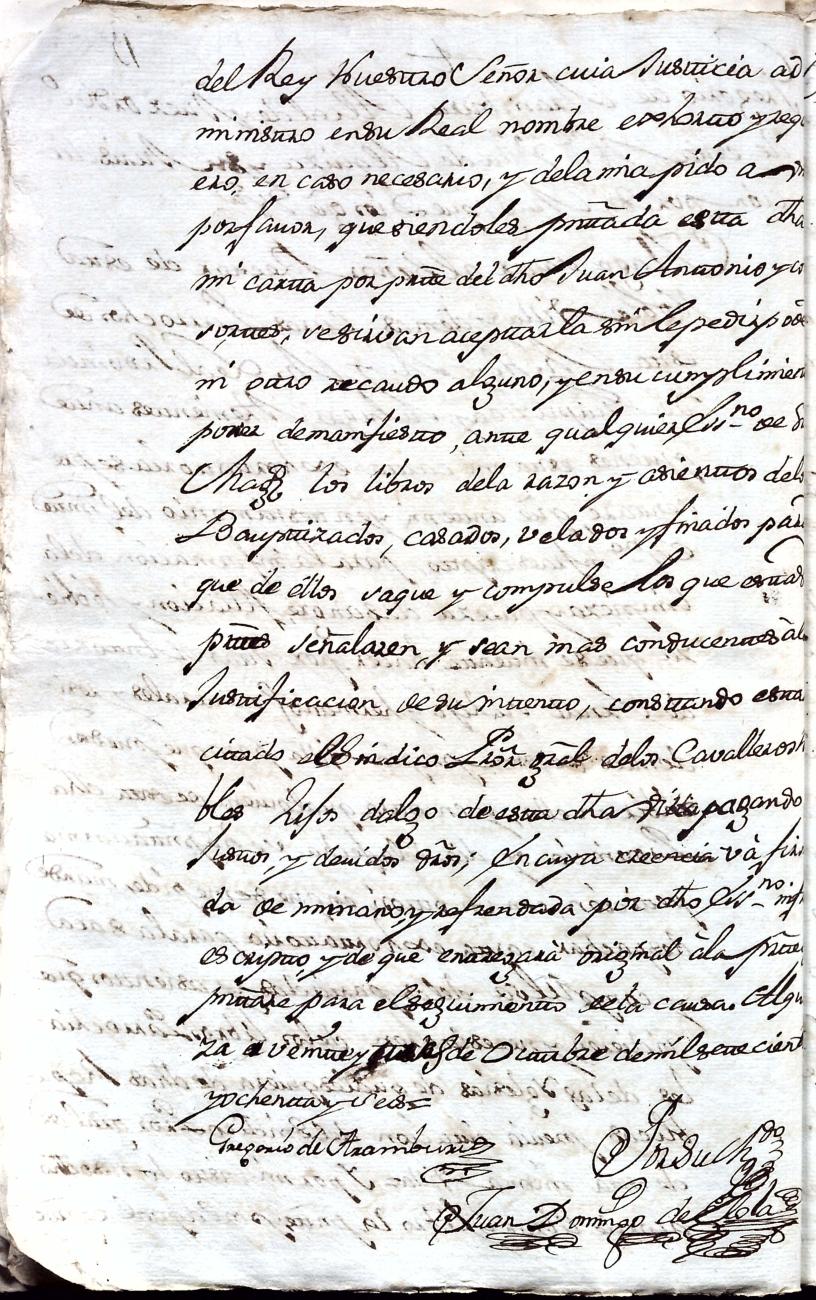 del Rey Nuestro Señor cuia Justicia ad
ministro en su Real nombre exsortto y requ
ero, en caso necesario, y dela mia pido a
por favor, que siendoles prttada estta dha
mi cartta por prtte del dho Juan Anttonio y co
sorttes, se sirvan aceptarla sin le pedir pode
ni ottro recaudo alguno, y en su cumplimien
poner demanifiestto, antte qualquier Essno de su
Mag los libros dela razon y asienttos delos
Baupttizados, casados, velados y finados para
que de ellos saque y compulse los que esttas
prttes señalaren y sean mas conducenttes à la
Justtificacion de su inttentto, consttando estta
cittado el Sindico Pror gral delos Cavalleros
bles Hijos dalgo de estta dha pagando
Justtos, y devidos dros; En cuya creencia và firm
da de mi mano, y refrendada por dho Essno infr
escriptto, y de que enttregarà original à la prtte
prttare para el seguimientto dela causa. Algui
za a veintte y de Octtubre de mil settecient
y ochentta y seis=
Gregorio de Aramburu
Por su Mdo
Juan Domingo de